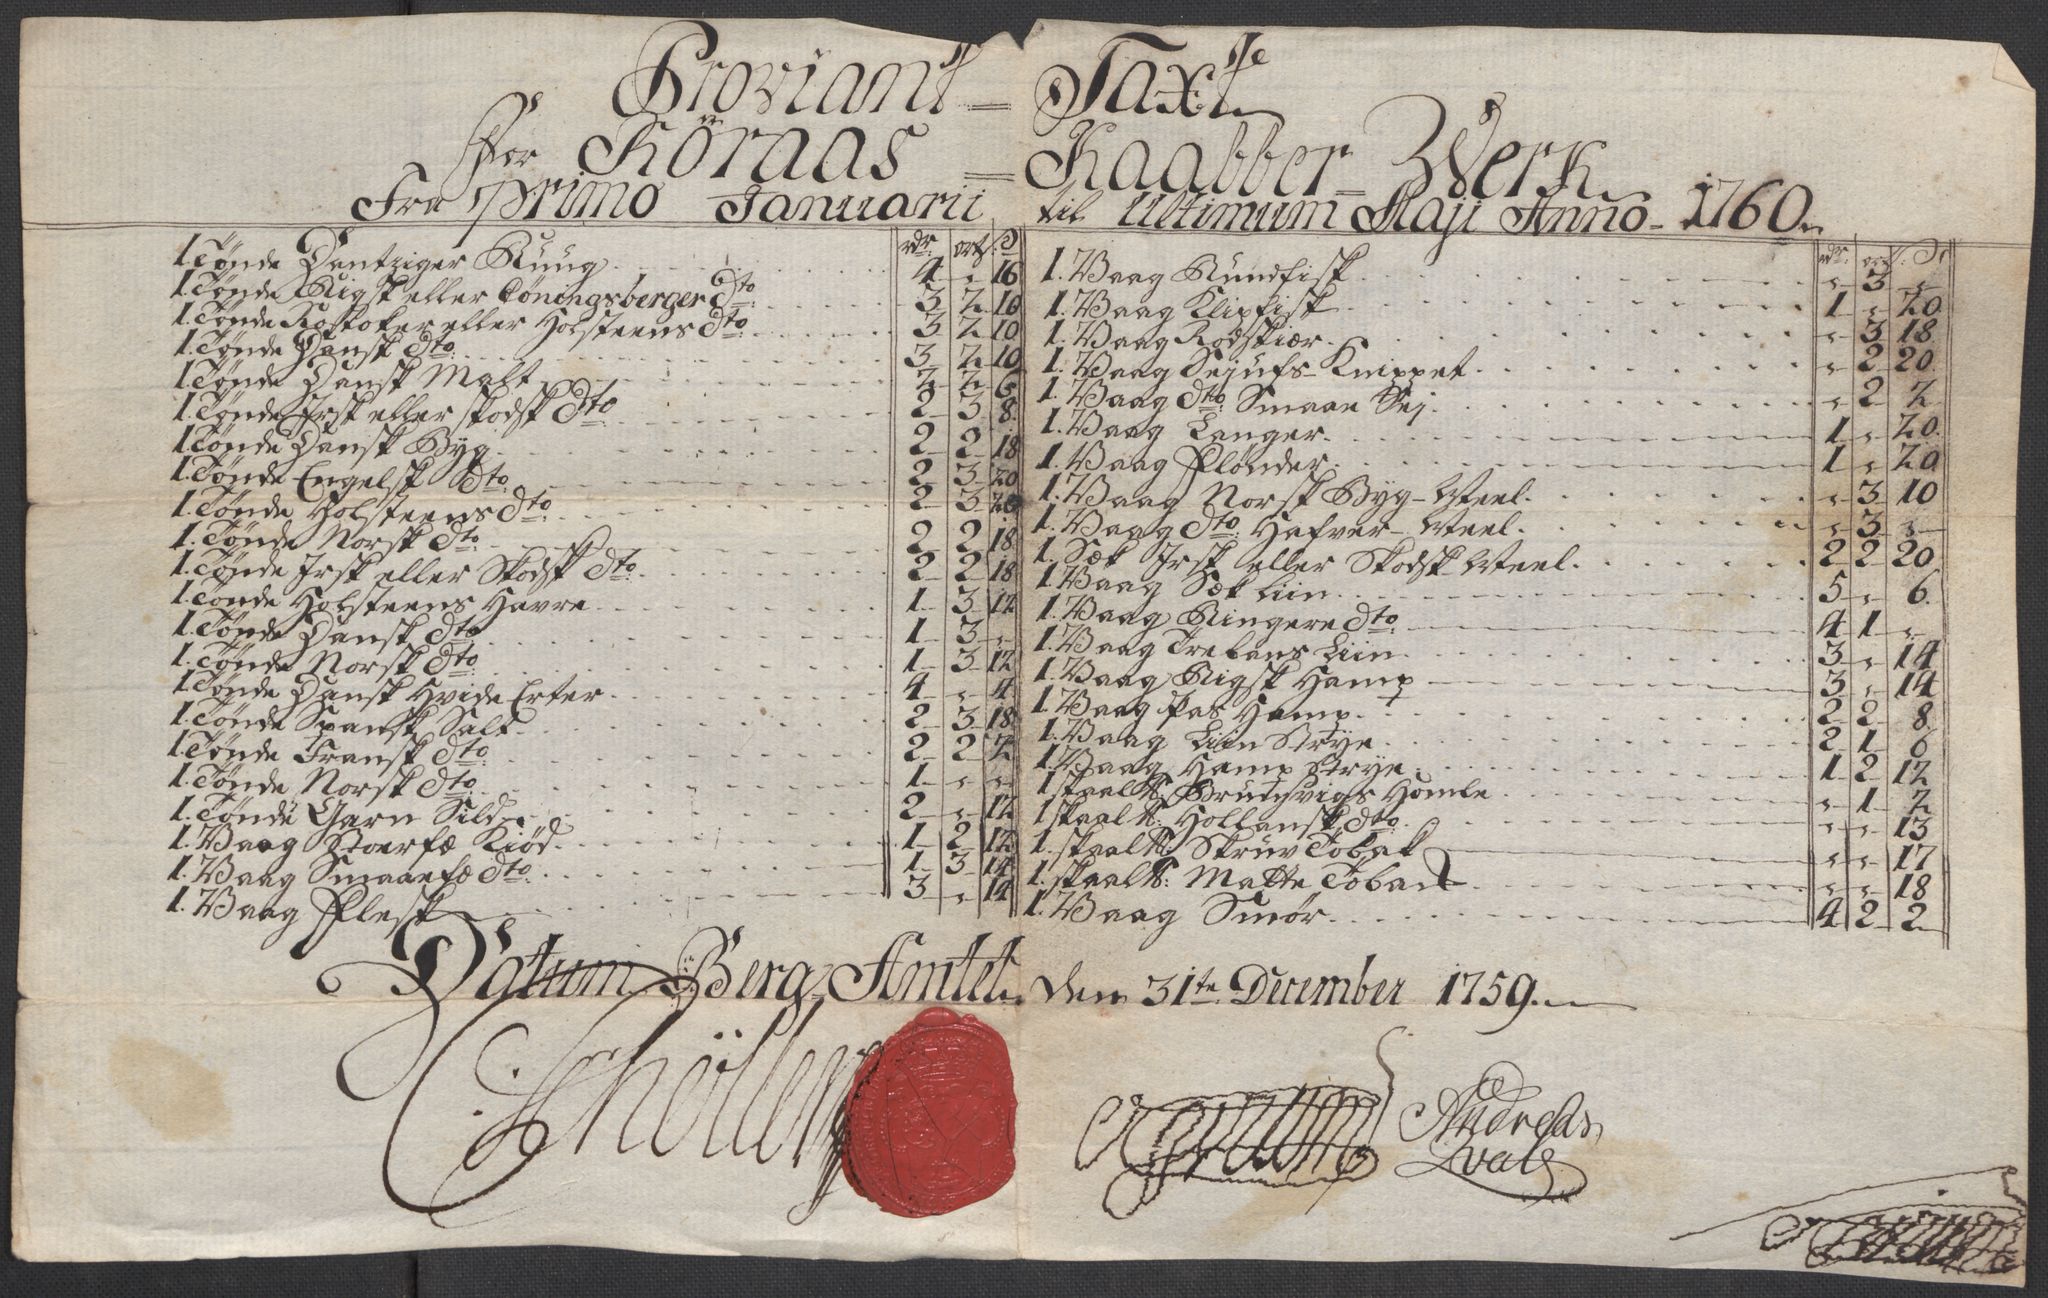 Proviant = Taxt
For Röraas = Kaabber = Werk
Fra Primo Januarii til Ultimum Maji Anno 1760
rdr. ort. s.
1. Tønde Dantziger Ruug 4 „ 16
1. Tønde Rigsk eller Cöningsberger dto 3 2 10
1. Tønde Rostoker eller Holsteens dto 3 2 10
1. Tønde Dansk dto 3 2 10
1. Tønde Dansk Malt 2 2 6
1. Tønde Irsk eller skodsk dto 2 3 8
1. Tønde Dansk Byg 2 2 18
1. Tønde Engelsk dto 2 3 20
1. Tønde Holsteens dto 2 3 20
1. Tønde Norsk dto 2 2 18
1. Tønde Irsk eller Skodsk dto 2 2 18
1. Tønde Holsteens Havre 1 3 12
1. Tønde Dansk dto 1 3 „
1. Tønde Norsk dto 1 3 12
1. Tønde Dansk Hvide Erter 4 „ 4
1. Tønde Spansk Salt 2 3 18
1. Tønde Fransk dto 2 2 2
1. Tønde Norsk dto 1 „ „
1. Tønde Garn Sild 2 „ 12
1. Vaag Stoerfæ Kiød 1 2 12
1. Vaag Smaaefæ dto 1 3 14
1. Vaag Flesk 3 „ 14
rdr. ort. s.
1. Vaag Rundfisk „ 3 „
1. Vaag Klipfisk 1 „ 20
1. Vaag Rodskiær „ 3 18
1. Vaag Sejufs Knippet „ 2 20
1. Vaag dto Smaae Sej „ 2 2
1. Vaag Langer 1 „ 20
1. Vaag Flønder 1 „ 20
1. Vaag Norsk Byg-Meel „ 3 10
1. Vaag dto Hafver-Meel „ 3 „
1. Sæk Irsk eller Skodsk Meel 2 2 20
1. Vaag Sæk Liin 5 „ 6
1. Vaag Ringere dto 4 1 „
1. Vaag Trebans Liin 3 „ 14
1. Vaag Rigsk Hamp 3 „ 14
1. Vaag Pas Hamp 2 2 8
1. Vaag Liin Strye 2 1 6
1. Vaag Hamp Strye 1 2 12
1 skaal℔ Brunsvigs Homle „ 1 2
1 skaal℔ Hollansk dto „ „ 13
1. skaal℔ Skruv Tobak „ „ 17
1. skaal℔ Matte Tobak „ „ 18
1. Vaag Smør 4 2 2
Datum Berg Amtet den 31te December 1759
Schöller
Andreas